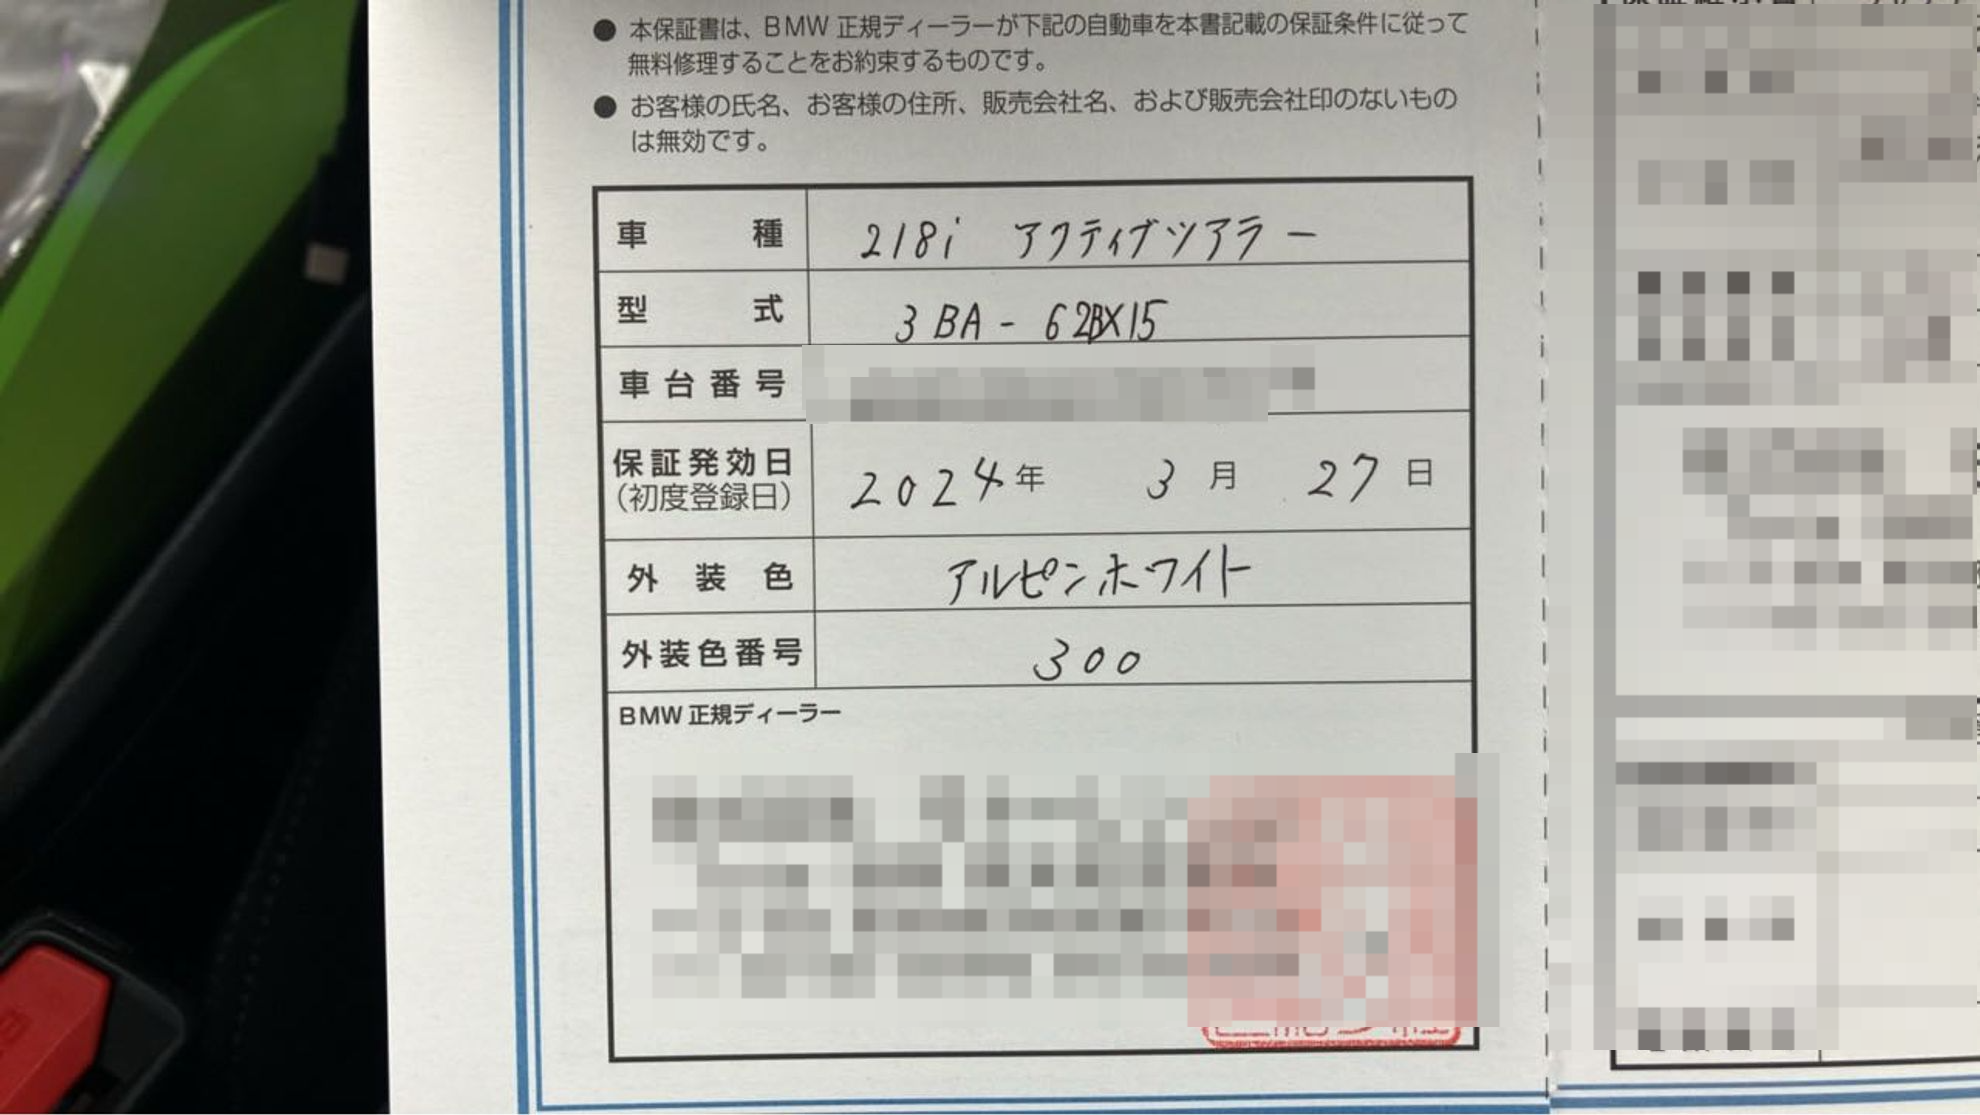 ● 本保証書は、BMW 正規ディーラーが下記の自動車を本書記載の保証条件に従って
無料修理することをお約束するものです。
● お客様の氏名、お客様の住所、販売会社名、および販売会社印のないもの
は無効です。
車種 218i アクティブツアラー
型式 3BA-62BX15
車台番号
保証発効日 2024年 3月 27日
(初度登録日)
外装色 アルピンホワイト
外装色番号 300
BMW 正規ディーラー